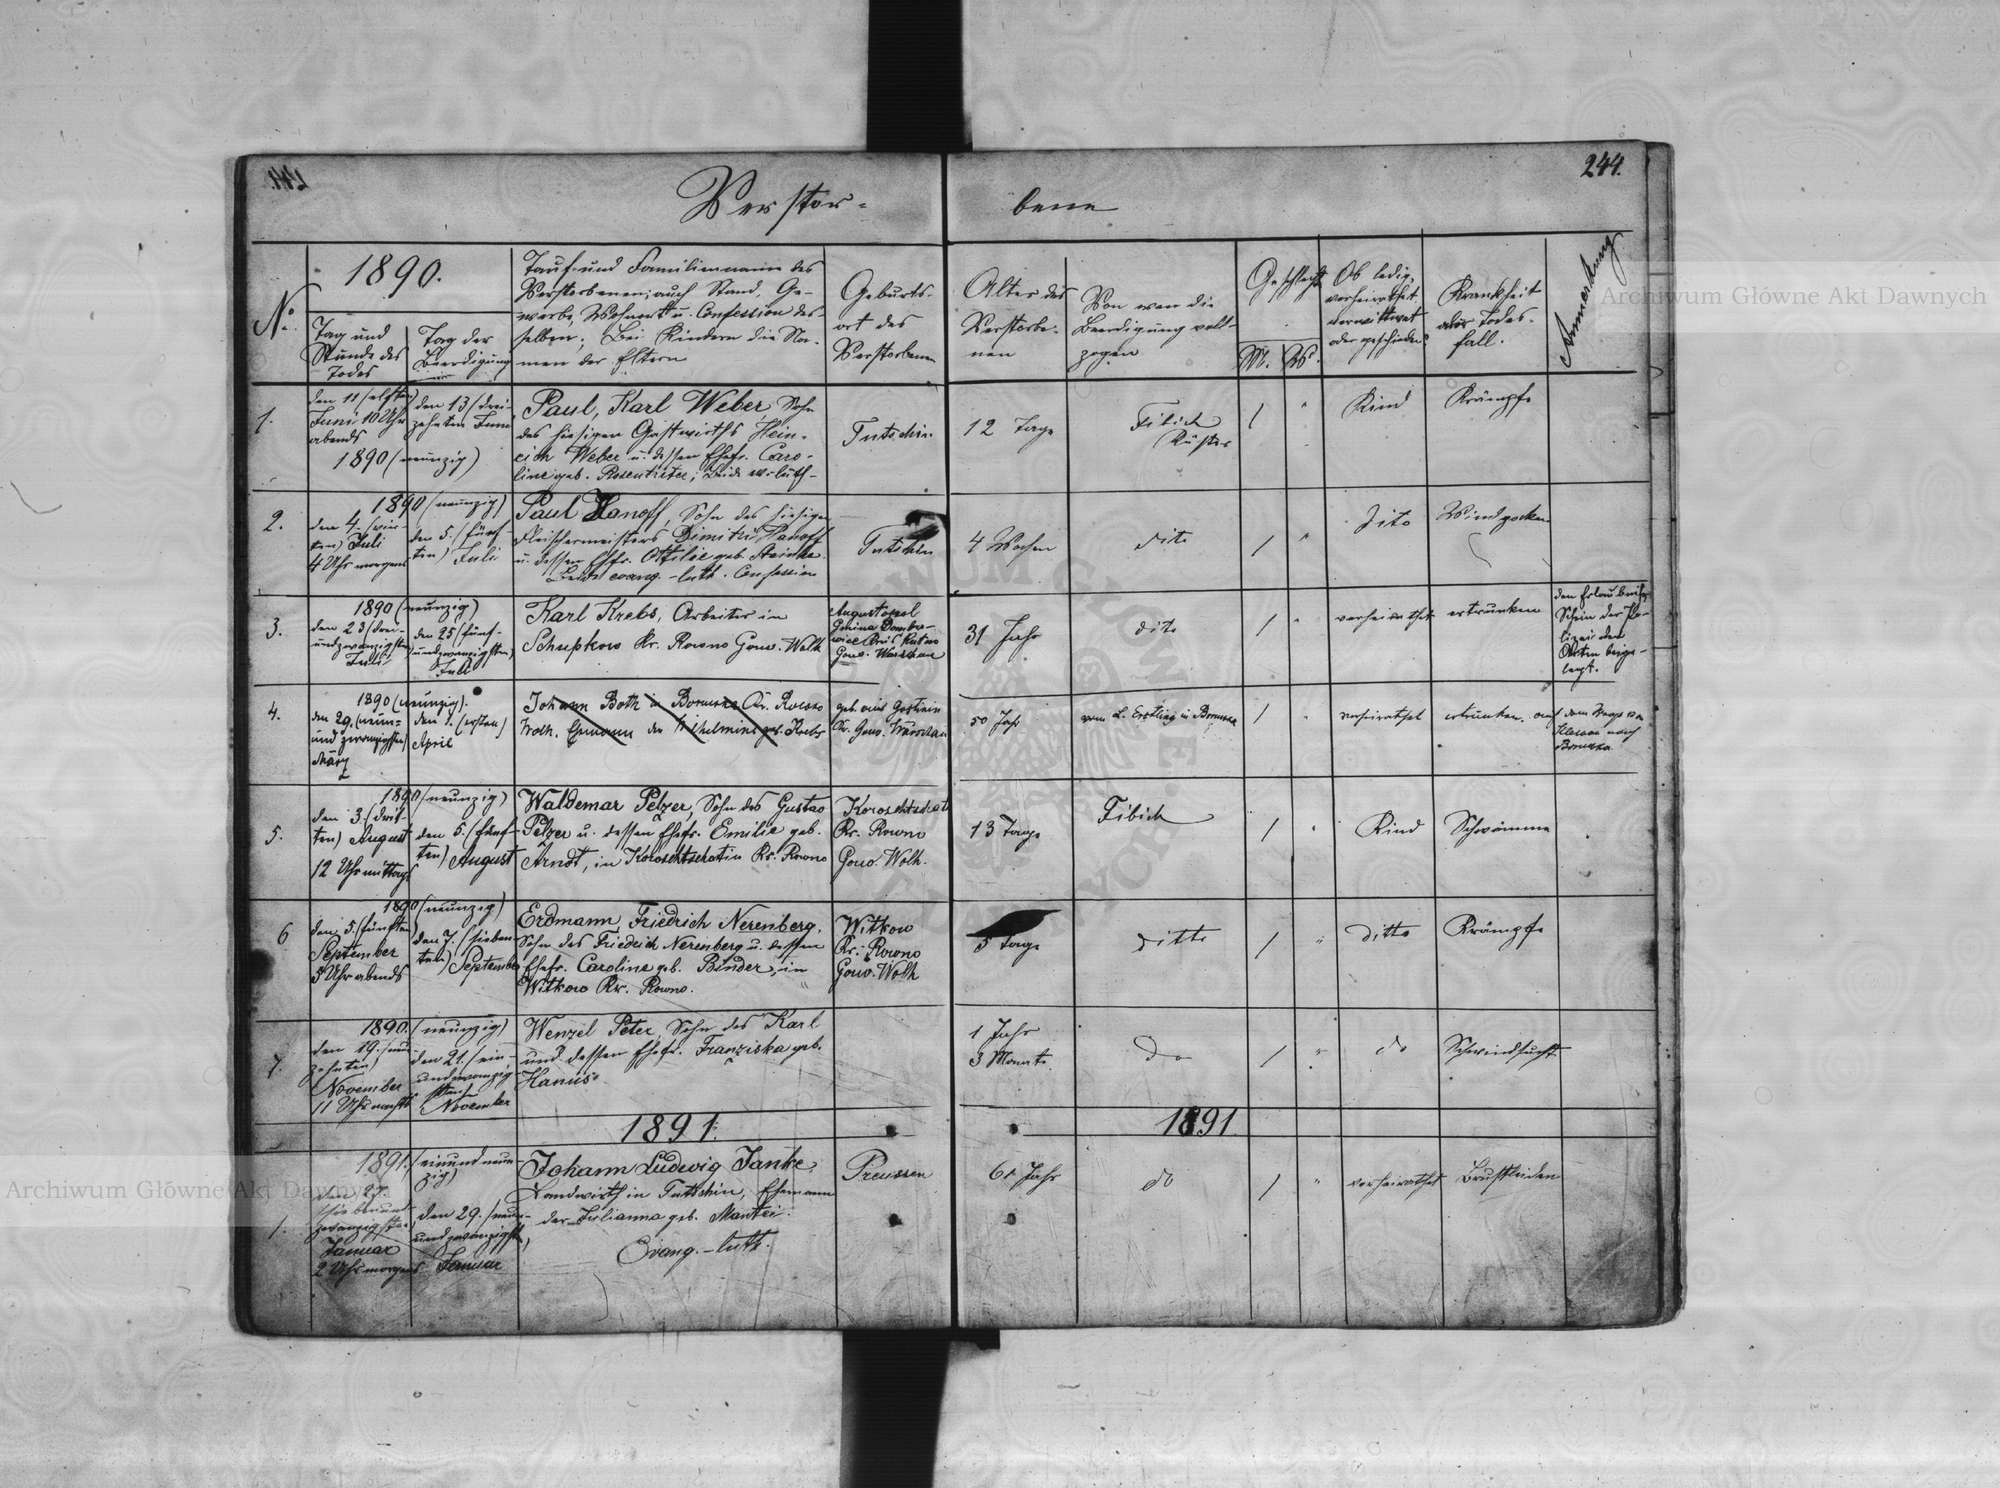 244.
Verstor-
bene
No.
1890.
Tag und
Stunde des
Todes
Tag der
Beerdigung
Tauf- und Familienname des
Verstorbenen; auch Stand, Ge-
werbe, Wohnort u. Confession des-
selben; Bei Kindern die Na-
men der Eltern
Geburts-
ort des
Verstorbenen
Alter des
Verstorbe-
nen
Von wem die
Beerdigung voll-
zogen
Geschlecht
M. W.
Ob ledig,
verheirathet
verwittwet
oder geschieden
Krankheit
oder Todes-
fall.
Anmerkung
1.
den 11 (elften)
Juni 10 Uhr
abends
den 13 (drei-
zehnten) Juni
1890 (neunzig)
Paul, Karl Weber, Sohn
des hiesigen Gastwirths Hein-
rich Weber u. dessen Ehefr. Caro-
line geb. Rosentreter; Beide ev-luth-
Tutschin.
12 Tage
Fibich
Küster
/ "
Kind
Krämpfe
2.
1890 (neunzig)
den 4. (vier-
ten) Juli
4 Uhr morgens
den 5. (fünf-
ten) Juli
Paul Hanoff, Sohn des hiesigen
Fleischermeisters Dimitri Hanoff
u. dessen Ehefr. Ottilie geb.
Beide evang.-luth. Confession
Tutschin
4 Wochen
dito
/ "
dito
Windpocken
3.
1890 (neunzig)
den 23 (drei-
undzwanzigsten)
Juli
den 25 (fünf-
undzwanzigsten)
Juli
Karl Krebs, Arbeiter in
Schupkow Kr. Rowno Gouv. Wolh
Augustopol
Gmina Dombro-
wice Kreis Kutno
Gouv. Warschau
31 Jahr
dito
/ "
verheirathet
ertrunken
den Erlaubniss
Schein der Po-
lizei den
Akten beige-
legt.
4.
1890 (neunzig).
den 29. (neun-
und zwanzigsten)
März
den 1. (ersten)
April
Johann Both in Bronuska Kr. Rowno
Wolh. Ehmann der Wilhelmine geb. Krebs
geb. aus Gostinin
Kr. Gouv. Warschau
50 Jahr
vom L. Erstling in
/
verheirathet
ertrunken auf dem Wege von
nach
5.
1890 (neunzig)
den 3. (drit-
ten) August
12 Uhr mittags
den 5. (fünf-
ten) August
Waldemar Pelzer, Sohn des Gustav
Pelzer u. dessen Ehefr. Emilie geb.
Arndt, in Koroschtschatin Kr. Rowno
Koroschtschat
Kr. Rowno
Gouv. Wolh.
13 Tage
Fibich
/ "
Kind
Schwämme
6
1890 (neunzig)
den 5. (fünften)
September
5 Uhr abends
den 7. (sieben-
ten) September
Erdmann, Friedrich Nerenberg,
Sohn des Friedrich Nerenberg u. dessen
Ehefr. Caroline geb. Binder, in
Witkow Kr. Rowno.
Witkow
Kr. Rowno
Gouv. Wolh
5 Tage
ditto
/ "
ditto
Krämpfe
7.
1890. (neunzig)
den 19. (neun-
zehnten)
November
11 Uhr nachts
den 21. (ein-
undzwanzig-
sten)
November
Wenzel Peter, Sohn des Karl
und dessen Ehefr. Franziska geb.
Hanus.
1 Jahr
3 Monate.
do
/ "
do
Schwindsucht
1891.
1891.
1.
1891. (einundneun-
zig)
den 27.
(siebenund-
zwanzigsten)
Januar
2 Uhr morgens
den 29. (neun-
undzwanzigsten)
Januar
Johann Ludwig Janke,
Landwirth in Tuttschin, Ehemann
der Julianna geb. Mantei.
Evang.-luth.
Preussen
61 Jahr
do
/ "
verheirathet
Brustleiden
Archiwum Główne Akt Dawnych
Archiwum Główne Akt Dawnych